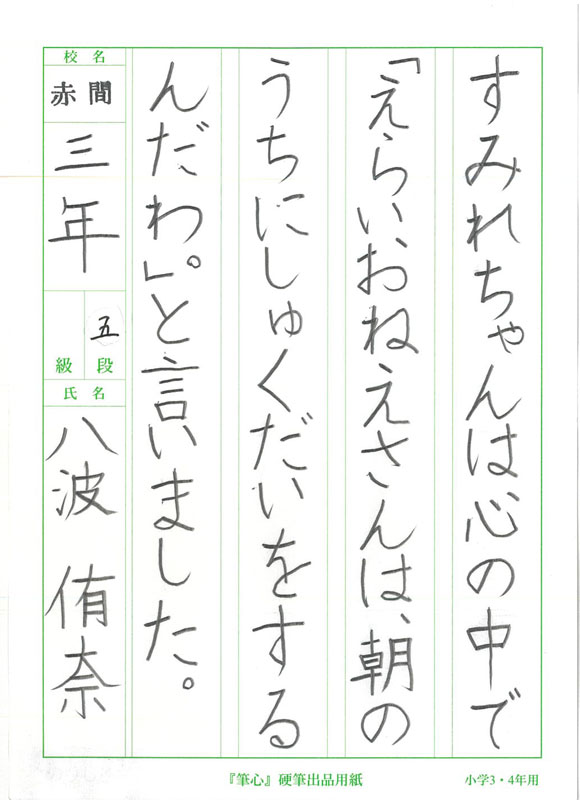 すみれちゃんは心の中で
「えらい、おねえさんは、朝の
うちにしゅくだいをする
んだわ。」と言いました。
校名
赤間
三年
五
級 段
氏名
八波 侑奈
『筆心』硬筆出品用紙
小学3・4年用